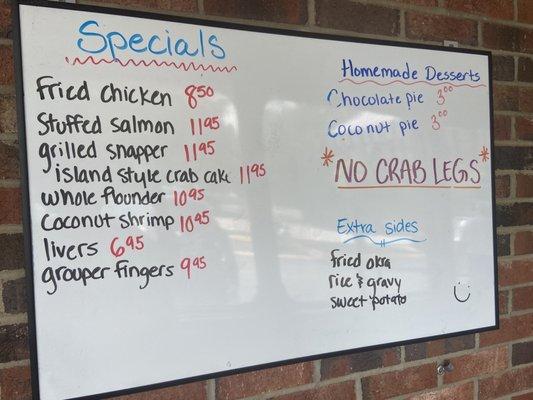 Specials
fried chicken 8.50
Stuffed salmon 11.95
grilled snapper 11.95
island style crab cake 11.95
whole flounder 10.95
coconut shrimp 10.95
livers 6.95
grouper fingers 9.95
Homemade Desserts
Chocolate pie 3.00
Coconut pie 3.00
*NO CRAB LEGS*
Extra sides
fried okra
rice & gravy
sweet potato